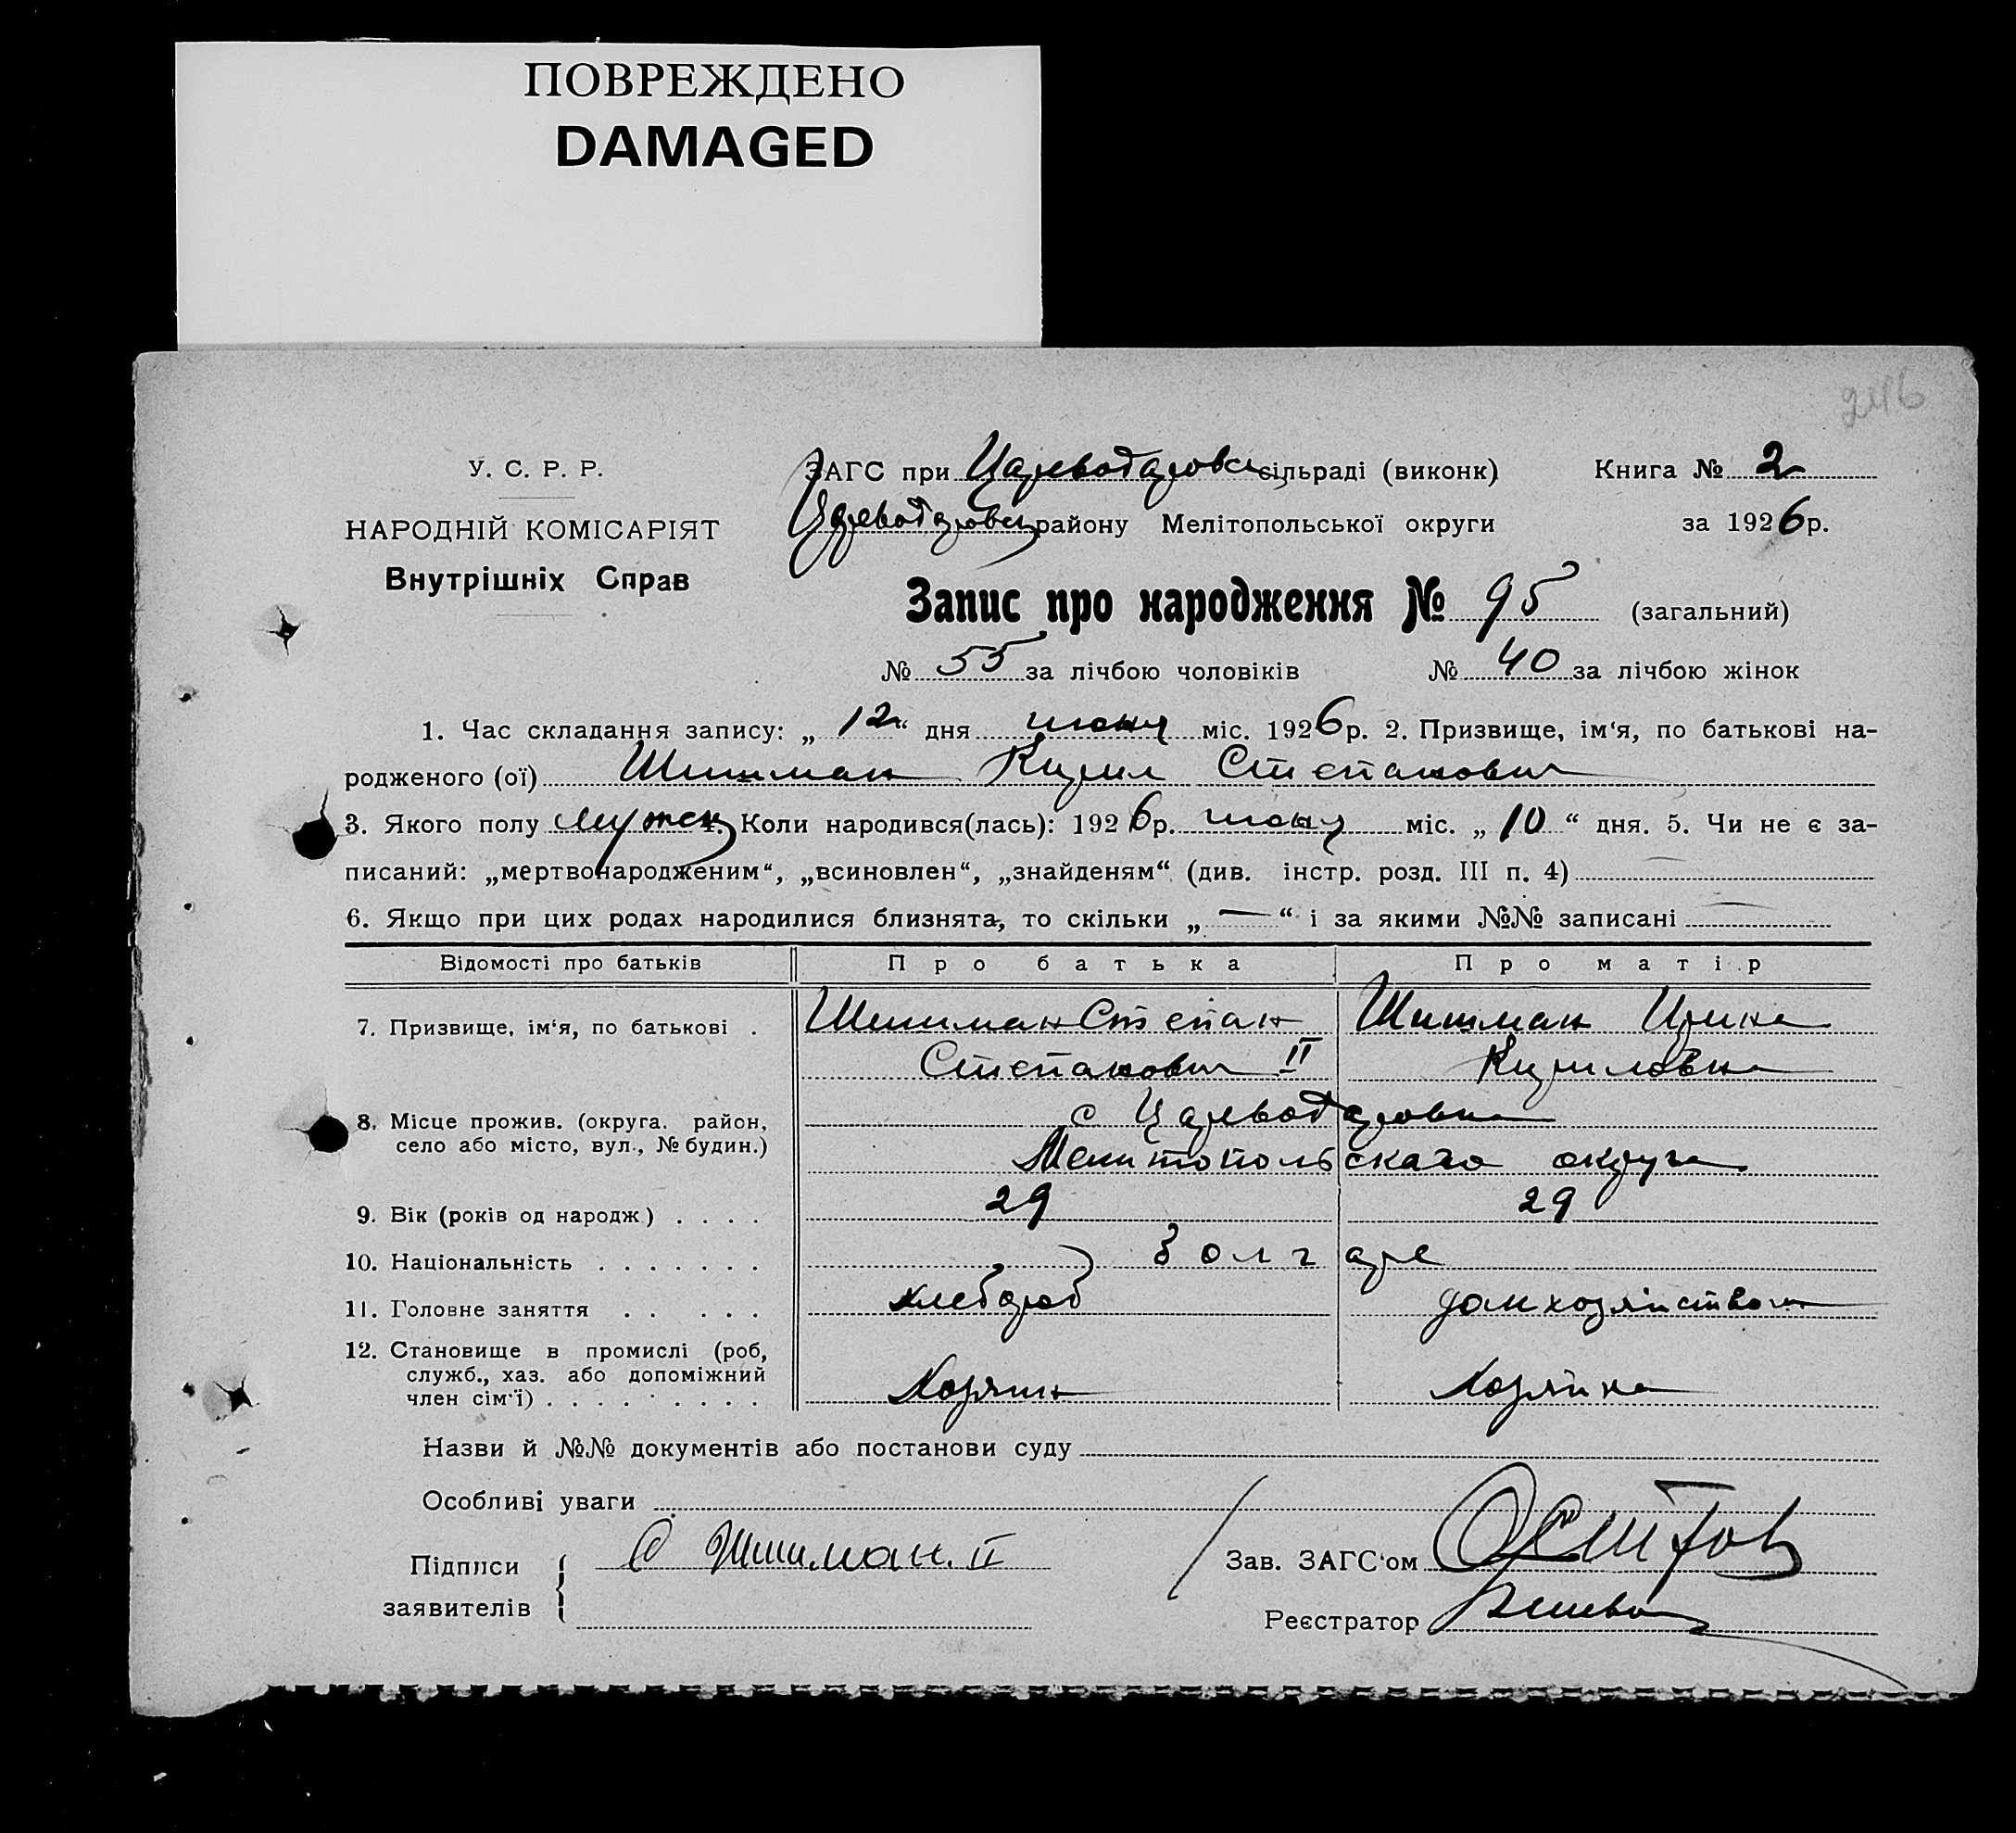 ПОВРЕЖДЕНО
DAMAGED
246
У. С. Р. Р.
ЗАГС при Цареводаровск сільраді (виконк) Книга № 2
НАРОДНІЙ КОМІСАРІЯТ
Цареводаровск району Мелітопольської округи за 1926 р.
Внутрішніх Справ
Запис про народження № 95 (загальний)
№ 55 за лічбою чоловіків № 40 за лічбою жінок
1. Час складання запису: „ 12 “ дня июня міс. 1926 р. 2. Призвище, ім‘я, по батькові на-
родженого (ої) Шишман Кирил Степанович
3. Якого полу мужск 4. Коли народився(лась): 1926 р. июня міс. „ 10 “ дня. 5. Чи не є за-
писаний: „мертвонародженим“, „всиновлен“, „знайденям“ (див. інстр. розд. III п. 4) —
6. Якщо при цих родах народилися близнята, то скільки „ — “ і за якими №№ записані —
Відомості про батьків Про батька Про матір
7. Призвище, ім‘я, по батькові . Шишман Степан Шишман Ирина
Степанович II Кириловна
8. Місце прожив. (округа. район, с Цареводаровка
село або місто, вул., № будин.) Мелитопольскаго округа
9. Вік (років од народж) . . . . 29 29
10. Національність . . . . . . . болгаре
11. Головне заняття . . . . . хлебороб домхозяйством
12. Становище в промислі (роб,
служб., хаз. або допоміжний
член сім‘ї) . . . . . . . . Хозяин Хозяйка
Назви й №№ документів або постанови суду
Особливі уваги
Підписи С Шишман. II Зав. ЗАГС‘ом
заявителів Реєстратор